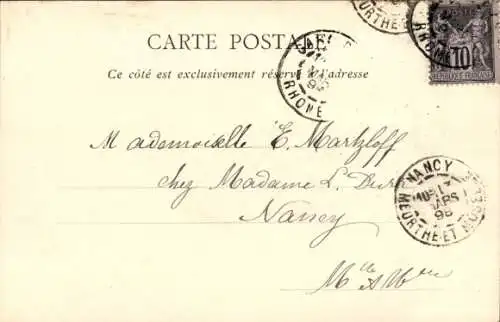 CARTE POSTALE
Ce côté est exclusivement réservé à l'adresse
RHONE
POSTES
10
RÉPUBLIQUE FRANÇAISE
RHONE
MEURTHE
Mademoiselle E. Martzloff
chez Madame L.
Nancy
Mlle
NANCY
MARS
98
MEURTHE-ET-MOSELLE